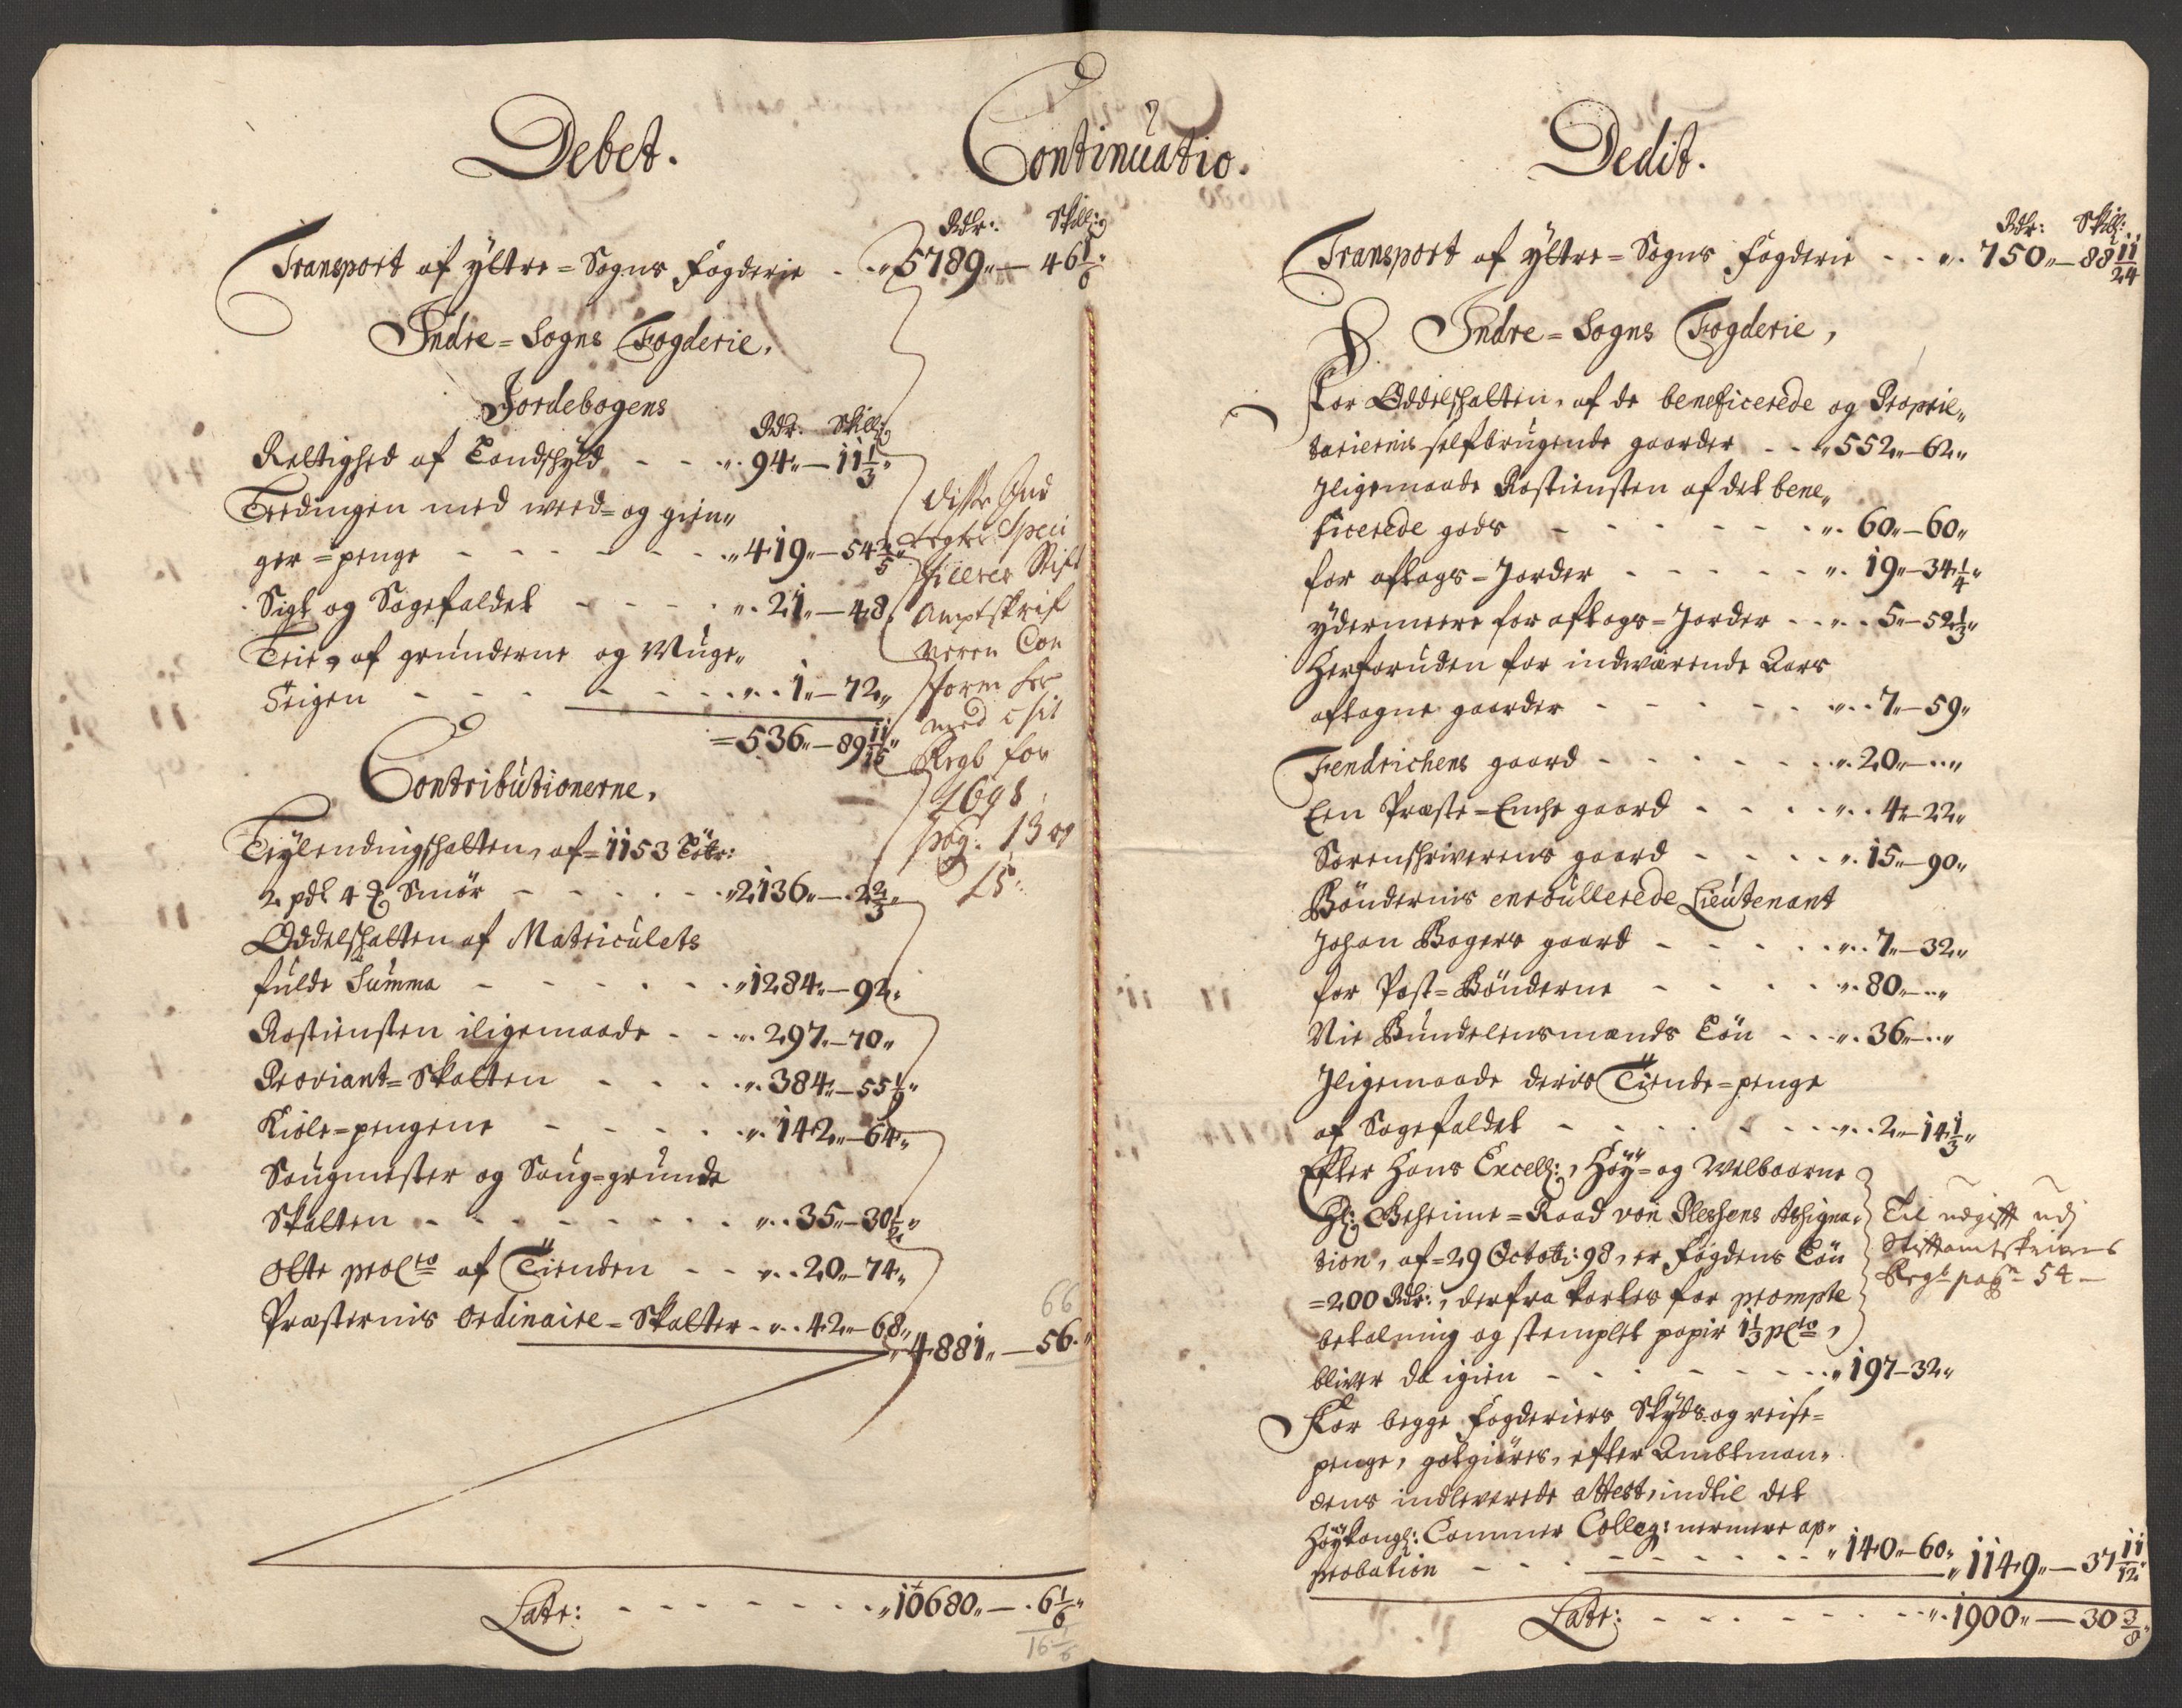 Debet.
Continuatio.
Rdr: Skill:
Transport af ÿttre=Sogns fogderie - „5789„—46 1/6„
Indre=Sogns Fogderie,
Jordebogens
Rdr. Skill:
Rettighed af Landschÿld - - - „94„—11 1/3„
Leedingen med weed= og gien„
ger=penge - - - - „419„—54 2/5„
Sigt og Sagefaldet - - - „21„—48„
Leie, af grunderne og Muge„
Teigen - - - - „1„—72„
=536„—89 11/15„
Contributionerne,
Leÿlendingschatten, af=1153 Löbr:
2 pd 4 Smör - - - „2136„—2 2/3„
Oddelschatten af Matriculets
fulde Summa - - - - „1284„—92„
Rostiensten iligemaade - - „297„—70„
Proviant=Skatten - - - „384„—55
Kiöle=pengene - - - „142„—64„
Saugmester og Saug=grunde
Skatten - - - - „35„—30 1/2„
Otte procto af Tienden - - „20„—74„
Præsternis Ordinaire=Skatter - „42„—68„
66
„4881„—56„
Disse Ind
tegter Speci
ficerer Stift
Amptskrif
veren Con
form her
med i sit
Regb for
1698
pag. 13 og
15
Latr: - - - - „10680„—6 1/6„
16 1/6
Dedit.
Rdr: Skill:
Transport af ÿttre=Sogns fogderie - - „750„—88 11/24
Indre=Sogns Fogderie,
For Oddelschatten, af de beneficerede og Proprie„
tariernis selfbrugende gaarder - - „552„—62„
Iligemaade Rostiensten af det bene„
ficerede gods - - - - „60„—60„
for aftags=Jorder - - - - „19„—34 1/4„
ÿdermeere for aftags=Jorder - - „5„—52 1/3„
Herforuden for indwærende Aars
aftagne gaarder - - - - „7„—59„
Fendrichens gaard - - - - „20„—„
Een Præste=Enche gaard - - - „4„—22„
Sorenschriverens gaard - - - „15„—90„
Böndernis enroullerede Lieutenant
Johan Bagers gaard - - - „7„—32„
for Post=Bönderne - - - „80„—„
Nie Bundelensmænds Lön - - „36„—„
Iligemaade deris Tiende=penge
af Sagefaldet - - - - „2„—14 1/3„
Efter Hans Excell:, Höÿ= og Welbaarne
Hr: Geheime=Raad von Plessens Assigna„
tion, af=29 Octobr: 98, er fogdens Lön
=200 Rdr:, derfra kortes for prompte
betalning og stemplet papir 1 1/3 pcto,
bliver da igien - - - - „197—32„
Til udgifft udj
Stiftamtskrivens
Regb pag 54 —
For begge fogderiers Skÿds= og reise=
penge, gotgiöres, efter Ambtman„
dens indleverede attest, indtil det
Höÿkongl: Cammer Colleg: nermere ap„
probation - - - - „140„—60„ „1149„—37 11/12„
Latr: - - - - „1900„—30 3/8„